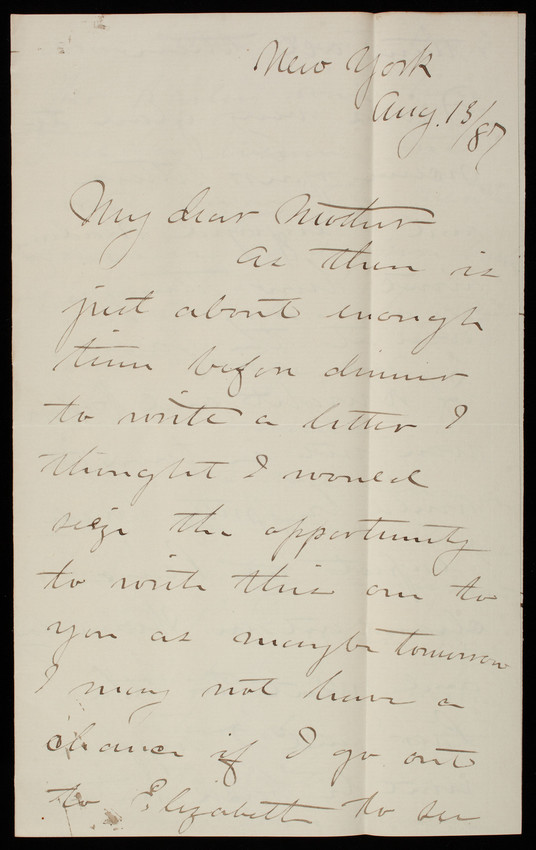 New York
Aug. 13/87
My dear Mother
As there is
just about enough
time before dinner
to write a letter I
thought I would
seize the opportunity
to write this one to
you as maybe tomorrow
I may not have a
chance if I go out
to Elizabeth to see